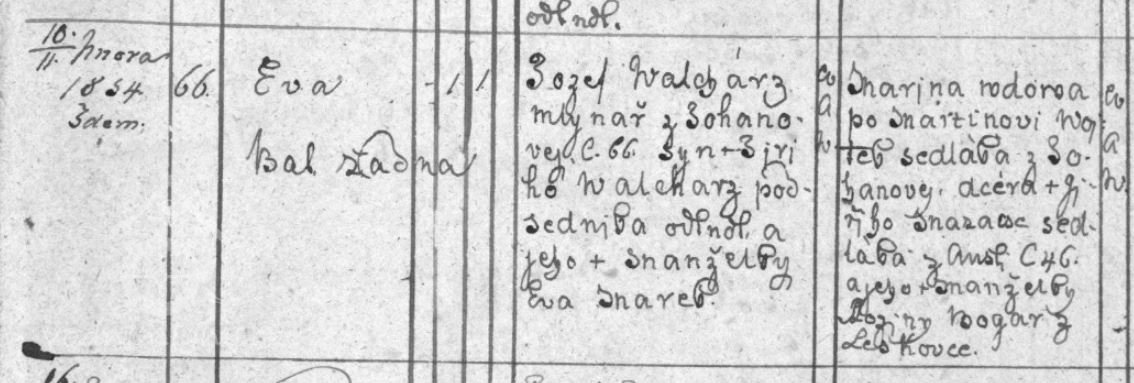 odtudt.
10./11. února
1854
3 dcm.
66.
Eva
Bab. žádná
- 1 1
Jozef Walchárz
mlynář z Johano-
vej. C. 66. Syn + Jiri
ho Walcharz pod-
sednika odtudt. a
jeho + manželky
Eva Mareč.
ev
A
w
Marina vdova
po Martinovi Woj-
tek sedláka z Jo-
hanovej. dcéra + Ji-
řiho sed-
láka z Aust. C 46.
a jeho + manželky
Roziny Wogař z
Leskovce.
ev
A
w
16.